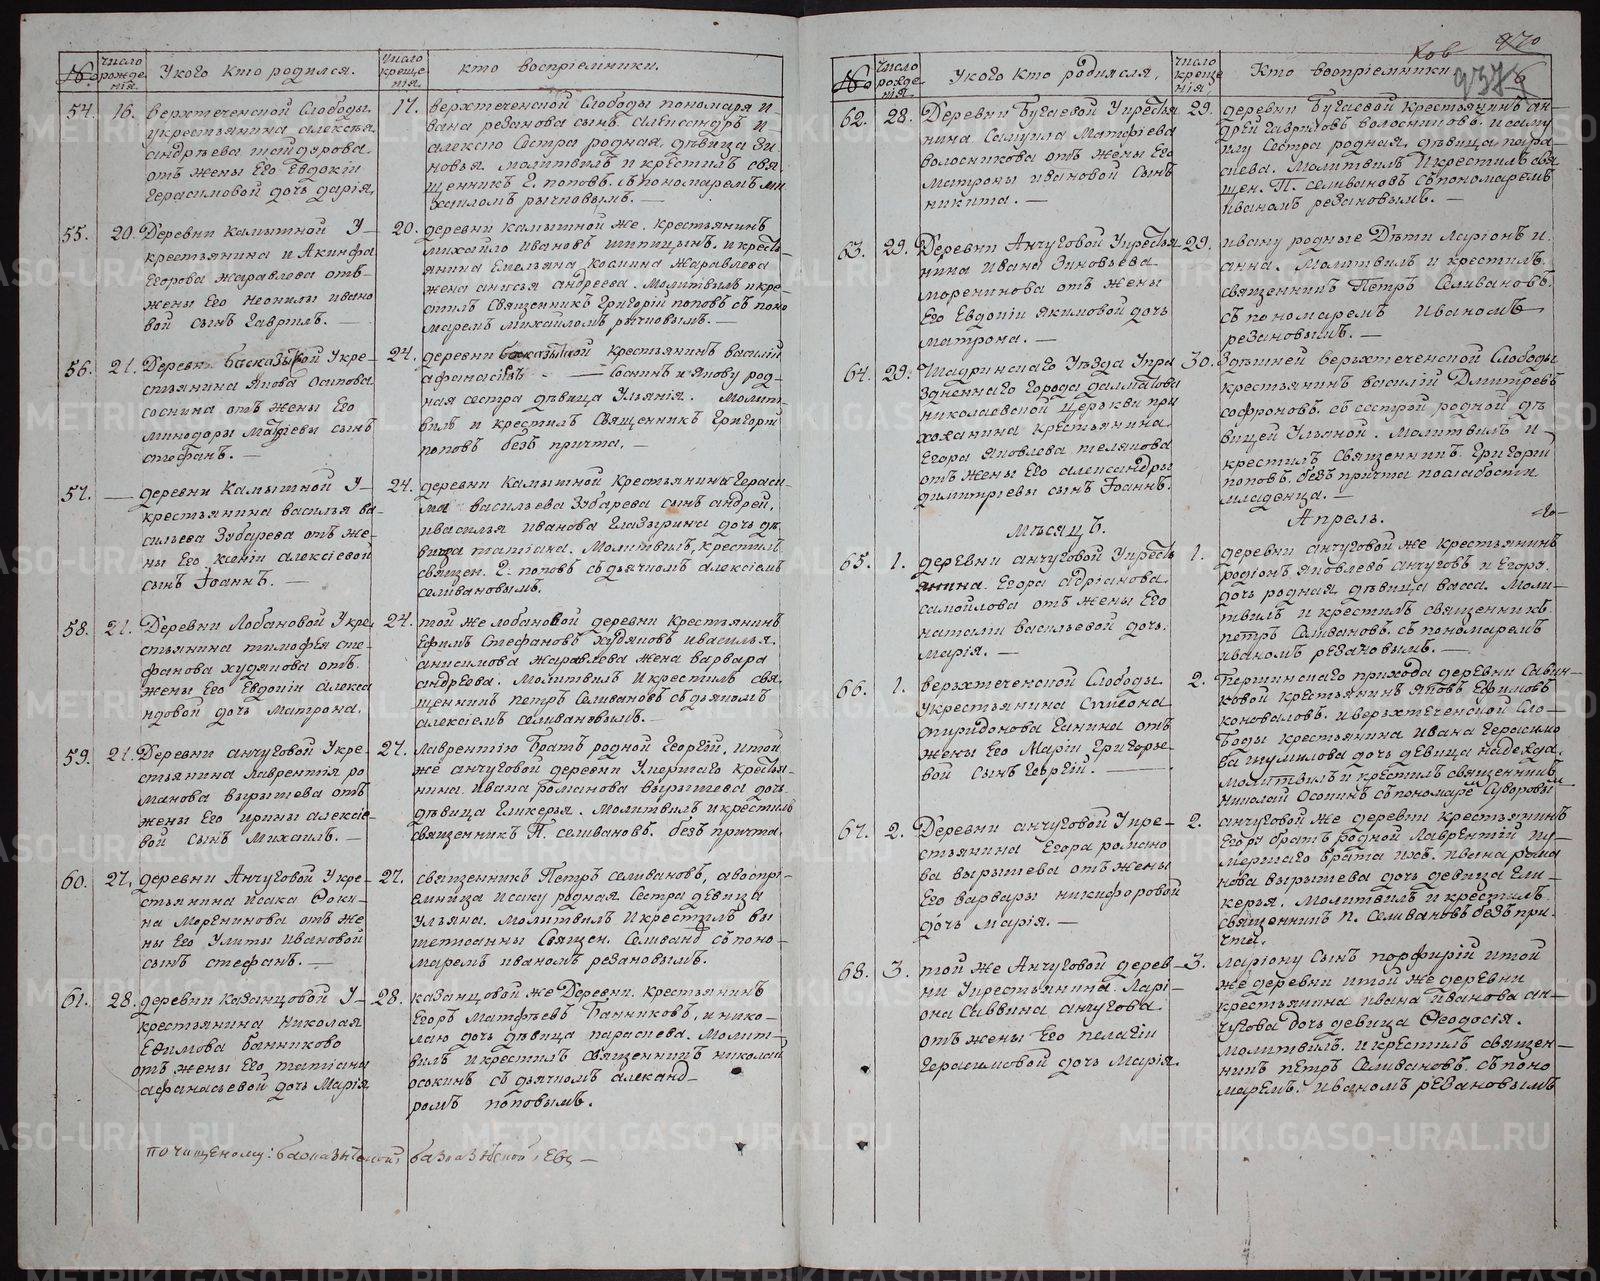 №
Число рожденія.
У кого кто родился.
Число крещенія.
кто воспріемники.
54. 16.
верхтеченской Слободы
у крестьянина алексѣя
андрѣева
отъ жены Его Евдокіи
Герасимовой дочь дарія.
17.
верхтеченской Слободы пономаря и-
вана резанова сынъ александръ и
алексію Сестра родная, дѣвица Зи-
новья. молитвилъ и крестилъ свя
щенникъ Г. поповъ. съ пономаремъ ми
хаиломъ рычковымъ. —
55. 20.
Деревни Камышной У-
крестьянина и Акинфа
Егорова Жаравлева отъ-
жены Его Неонилы ивано
вой сынъ Гавріилъ. —
20.
деревни камышной же. крестьянинъ
михайло ивановъ шипицынъ. и кресть
янина Емельяна, космина Жаравлева
жена анисья андреева. молитвилъ и кре-
стилъ Священникъ Григорій поповъ съ поно
маремъ михайломъ рычковымъ. —
56. 21.
Деревни баскозыкой У кре-
стьянина Якова Осипова
соснина отъ жены Его
минодоры сынъ
стефанъ. —
24.
деревни крестьянинъ василій
афанасьевъ — Соснинъ и якову род-
ная сестра дѣвица Ульянія. Молит-
вилъ и крестилъ Священникъ Григорій
поповъ безъ причта. —
57. —
деревни Камышной У-
крестьянина василья ва-
сильева Зубарева отъ же-
ны Его ксеніи алексіевой
сынъ Іоаннъ. —
24.
деревни Камышной Крестьянина Гераси-
ма васильева Зубарева сынъ андрей,
и василья иванова Глазырина дочь дѣ
вица татіана. Молитвилъ, крестилъ
священ. Г: поповъ съ дьячкомъ алексіемъ
селивановымъ.
58. 21.
Деревни Лобановой У кре,
стьянина тимофея сте-
фанова худякова отъ.
жены Его Евдокіи алекса
ндовой дочь матрона.
24.
той же лобановой деревни Крестьянинъ
Ефимъ Стефановъ худяковъ и василья.
анисимова жаравлева жена варвара
андреева. Молитвилъ и крестилъ свя
щенникъ петръ Селивановъ съ дьячкомъ
алексіемъ селивановымъ. —
59. 21.
Деревни анчуговой У кре-
стьянина лаврентія ро
манова вырышева отъ
жены Его ирины алексіе-
вой сынъ Михаилъ. —
27.
Лаврентію братъ родной Георгій, и той
же анчуговой деревни Умершаго кресть-
нина. ивана романова вырышева дочь
дѣвица Гликерья. Молитвилъ и крестилъ
священникъ П. селивановъ. безъ причта.
60. 27.
деревни Анчуговой У кре-
стьянина исака Фоки-
на Моренинова отъ же
ны Его Улиты ивановой
сынъ стефанъ. —
27.
священникъ Петръ селивановъ, а воспрі-
емница исаку родная Сестра дѣвица
Ульяна. Молитвилъ и крестилъ вы
шеписанны Священ. Селиванъ съ поно-
маремъ иваномъ резановымъ.
61. 28.
деревни казанцовой У-
крестьянина Николая
Ефимова банникова
отъ жены Его татіаны
афанасьевой дочь Марія
28.
казанцовой же Деревни. крестьянинъ
Егоръ Матфѣевъ Банниковъ, и нико-
лаю дочь дѣвица параскева. Молит-
вилъ и крестилъ Священникъ николай
осокинъ съ дьячкомъ александ-
ромъ поповымъ.
по чищеному:
№
Число рожденія
У кого кто родился.
Число крещенія
Кто воспріемники
970
62. 28.
Деревни Бугаевой У крестья
нина Самуила Матфіева
волосникова отъ жены Его
Матроны ивановой Сынъ
никита. —
29.
деревни бугаевой крестьянинъ ан-
дрей Гавриловъ волосниковъ. и саму
илу Сестра родная, дѣвица пара-
скева. Молитвилъ и крестилъ свя
щен. П. селивановъ съ пономаремъ
иваномъ резановымъ. —
63. 29.
Деревни Анчуговой У крестья-
нина ивана Зиновьева
моренинова отъ жены
Его Евдокіи якимовой дочь
матрона. —
29.
ивану родные Дѣти Ларіонъ и.
анна. Молитвилъ и крестилъ.
священникъ Петръ Селивановъ.
съ пономаремъ иваномъ
резановымъ. —
64. 29.
Шадринскаго Уѣзда Упра
здненнаго города далматова
николаевской Церькви при
хожанина крестьянина
Егора яковлева телякова
отъ жены Его александры
димитріевы сынъ Іоаннъ.
30.
Здѣшней верьхтеченской Слободы
крестьянинъ василій Дмитревъ
софроновъ. съ сестрой родной дѣ
вицей Ульяной. Молитвилъ и-
крестилъ Священникъ. Григорій
поповъ. безъ причта по слабости
младенца. —
Мѣсяцъ. Апрель.
65. 1.
деревни анчуговой У кресть
янина Егора адріанова
самойлова отъ жены Его
наталіи васильевой дочь.
Марія. —
1.
деревни анчуговой же крестьянинъ
родіонъ яковлевъ анчуговъ и Егора.
дочь родная дѣвица васса. Моли-
твилъ и крестилъ священникъ.
петръ Селивановъ. съ пономаремъ
иваномъ резановымъ. —
66. 1.
верьхтеченской Слободы
У крестьянина Симеона
спиридонова Ганина отъ
жены Его Маріи Григорье-
вой сынъ Георгій. —
2.
Першинскаго прихода деревни Савин-
ковой крестьянинъ яковъ Ефимовъ
коноваловъ. и верьхтеченской Сло-
боды крестьянина ивана Герасимо
ва шумилова дочь дѣвица надежда.
Молитвилъ и крестилъ священникъ
николай Осокинъ съ пономаремъ Суворовы
67. 2.
Деревни анчуговой У кре-
стьянина Егора романо
ва вырышева отъ жены
Его варвары никифоровой
дочь марія. —
2.
анчуговой же деревни крестьянинъ
Егору братъ родной Лаврентій и у-
мершаго брата ихъ. ивана рома
нова вырышева дочь девица Гли-
керья. Молитвилъ и крестилъ.
священникъ П. Селивановъ безъ при-
чта.
68. 3.
той же Анчуговой дерев-
ни У крестьянина Ларі-
она Саввина анчугова
отъ жены Его пелагіи
Герасимовой дочь Марія.
3.
ларіону сынъ порфирій и той
же деревни и той же деревни
крестьянина ивана иванова ан-
чугова дочь девица Феодосія.
Молитвилъ. и крестилъ священ-
никъ петръ Селивановъ. съ поно
маремъ. иваномъ резановымъ
METRIKI.GASO-URAL.RU